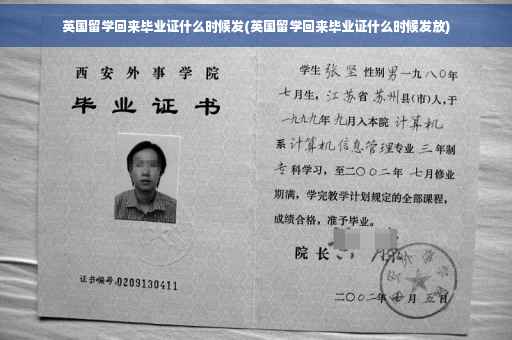 英国留学回来毕业证什么时候发(英国留学回来毕业证什么时候发放)
西安外事学院
毕业证书
证书编号:0209130411
学生 张坚 性别 男 一九八〇年
七月生, 江苏省 苏州县(市)人,于
一九九九年 九月入本院 计算机
系 计算机信息管理专业 三 年制
专科学习, 至二〇〇二年 七月修业
期满, 学完教学计划规定的全部课程,
成绩合格, 准予毕业。
院长
二〇〇二年 月五日